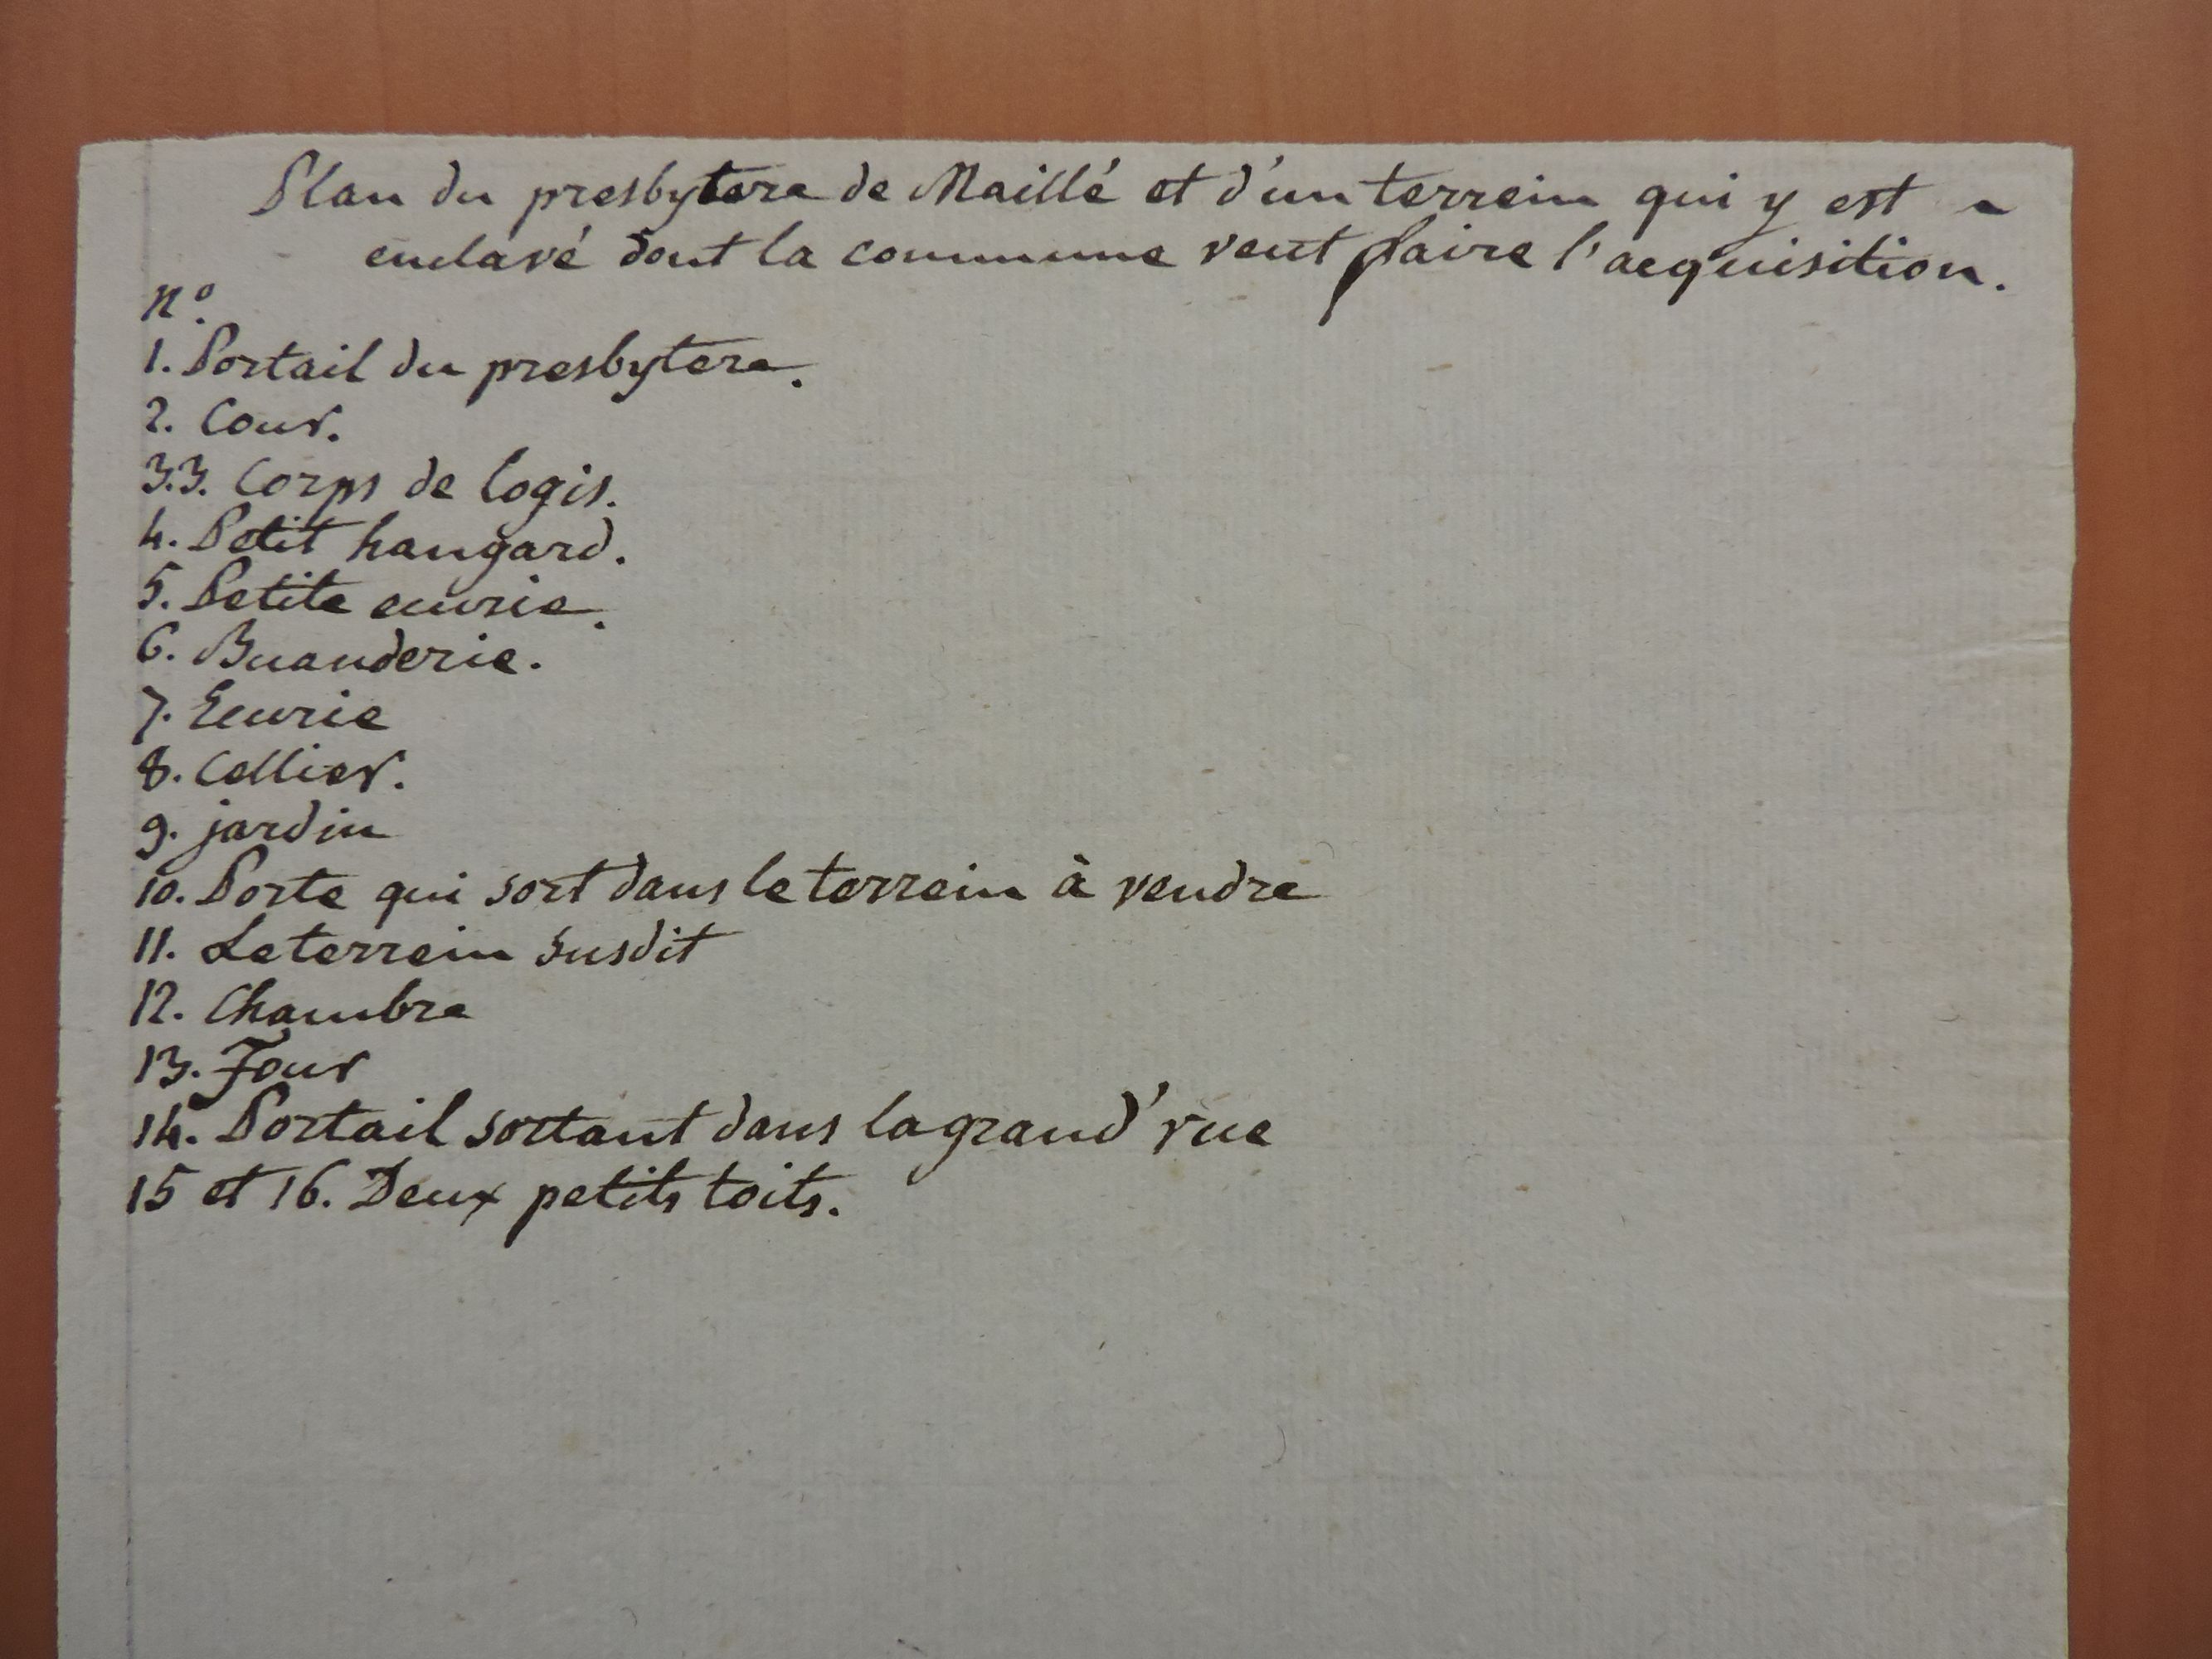 Plan du presbytere de Maillé et d'un terrein qui y est ~
enclavé dont la commune veut faire l'acquisition.
N°.
1. Portail du presbytere.
2. Cour.
3.3. Corps de logis.
4. Petit hangard.
5. Petite ecurie.
6. Buanderie.
7. Ecurie
8. Cellier.
9. jardin
10. Porte qui sort dans le terrein à vendre
11. Le terrein susdit
12. Chambre
13. Four
14. Portail sortant dans la grand'rue
15 et 16. Deux petits toits.